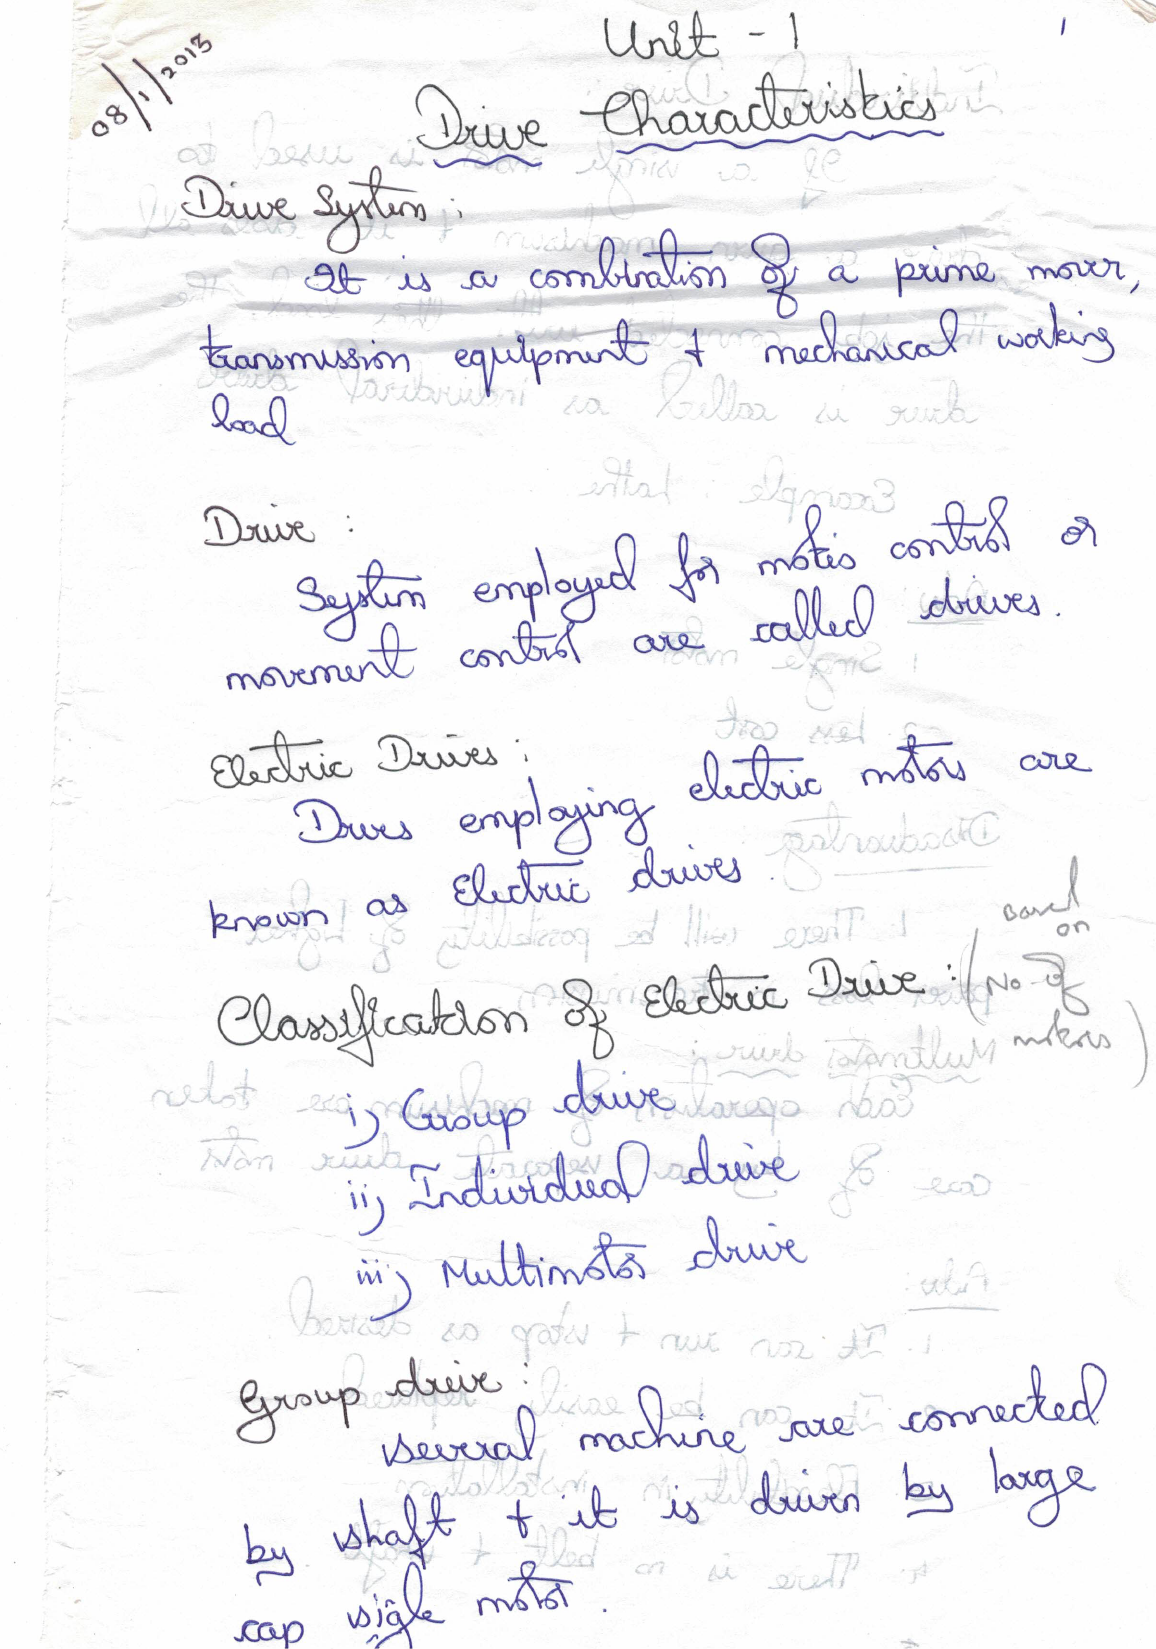 08/1/2013
1
Unit - 1
Drive Characteristics
Drive System :
It is a combination of a prime mover,
transmission equipment + mechanical working
load
Drive :
System employed for motion control or
movement control are called drives.
Electric Drives :
Drives employing electric motors are
known as Electric drives.
Classification of Electric Drive : (based on No. of motors)
i) Group drive
ii) Individual drive
iii) Multimotor drive
Group drive :
several machine are connected
by shaft + it is driven by large
cap sigle motor.